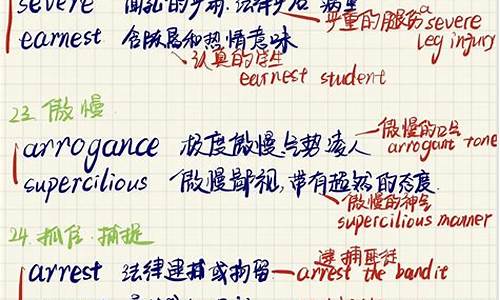 severe
严重的腿伤 a severe leg injury
earnest 含殷昜和热情意味
认真的学生 earnest student
23. 傲慢
arrogance 极度傲慢、气势凌人
傲慢的口气 arrogant tone
supercilious 傲慢鄙视，带有超然的态度
傲慢的神气 supercilious manner
24. 抓住、捕捉
arrest 法律逮捕或拘留
逮捕匪徒 arrest the bandit